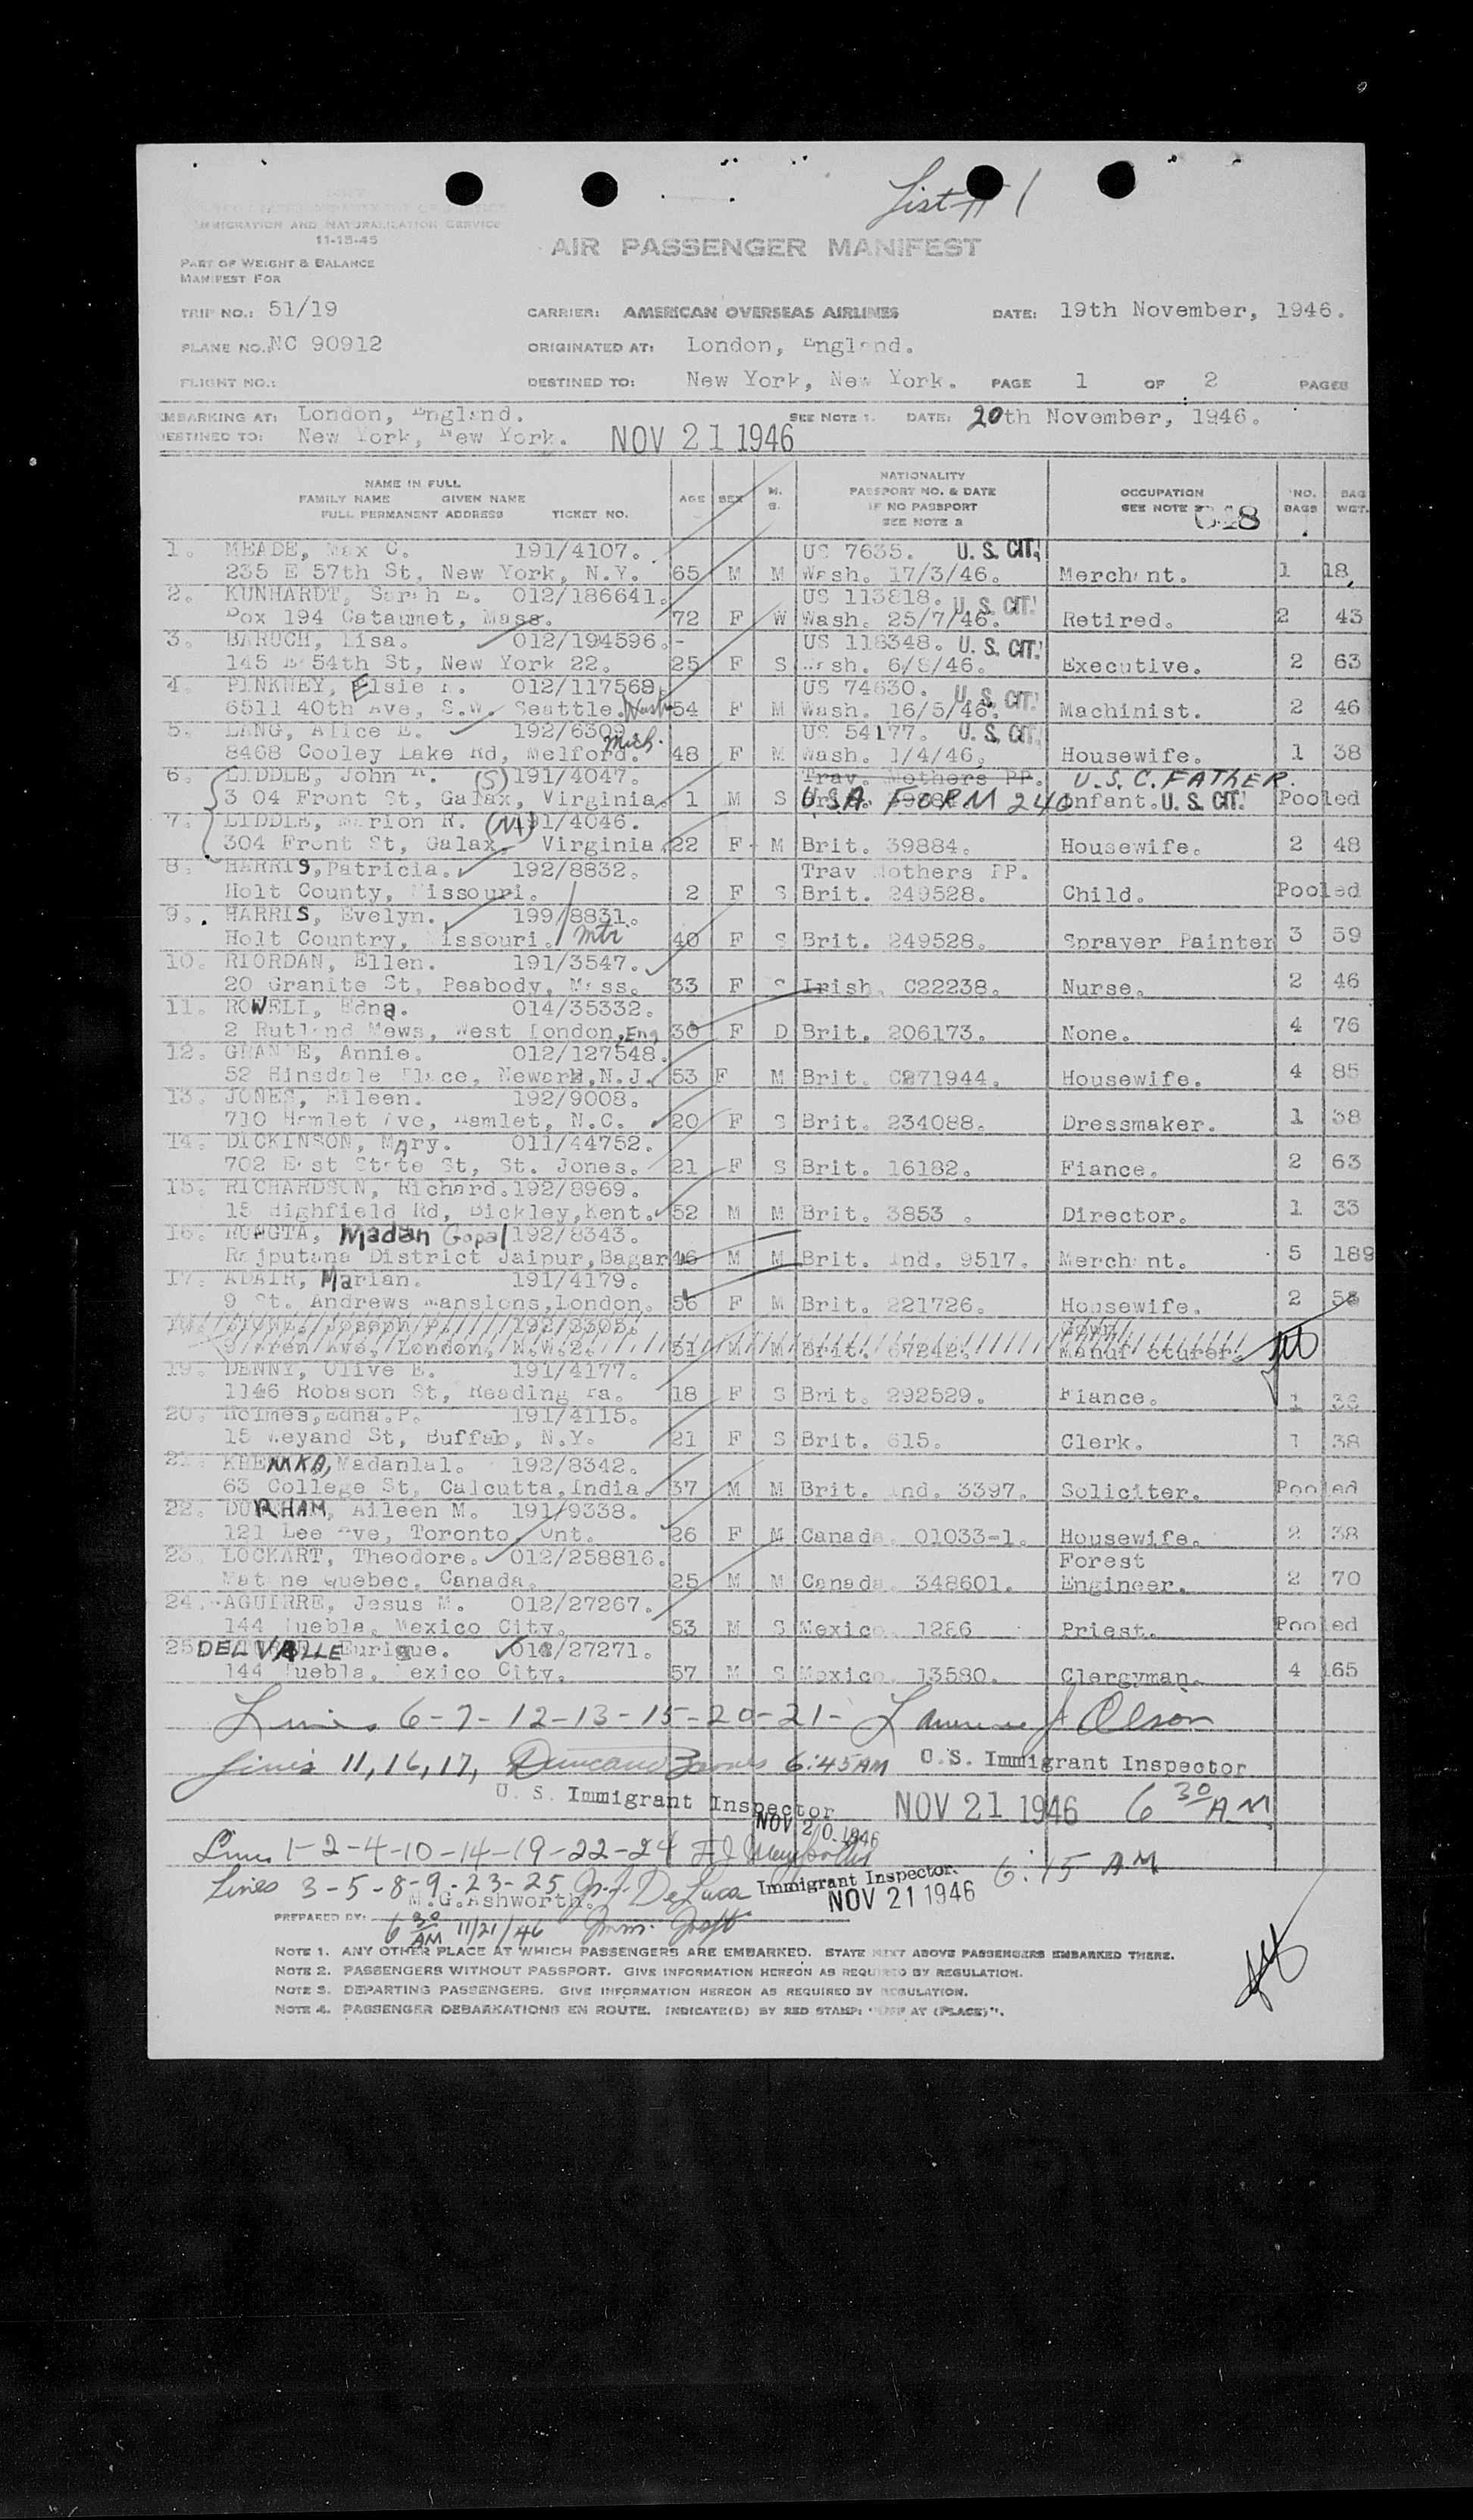 List # 1
IMMIGRATION AND NATURALIZATION SERVICE
11-15-45
AIR PASSENGER MANIFEST
PART OF WEIGHT & BALANCE
MANIFEST FOR
TRIP NO.: 51/19 CARRIER: AMERICAN OVERSEAS AIRLINES DATE: 19th November, 1946.
PLANE NO.: NC 90912 ORIGINATED AT: London, England.
FLIGHT NO.: DESTINED TO: New York, New York. PAGE 1 OF 2 PAGES
EMBARKING AT: London, England. SEE NOTE 1. DATE: 20th November, 1946.
DESTINED TO: New York, New York. NOV 21 1946
NAME IN FULL
FAMILY NAME GIVEN NAME
FULL PERMANENT ADDRESS TICKET NO. AGE SEX M. S. NATIONALITY PASSPORT NO. & DATE IF NO PASSPORT SEE NOTE 2 OCCUPATION SEE NOTE 048 NO. BAGS BAG WGT.
1. MEADE, Max C. 191/4107. US 7635. U. S. CIT.
235 E 57th St, New York, N.Y. 65 M M Wash. 17/3/46. Merchant. 1 18
2. KUNHARDT, Sarah E. 012/186641. US 113818. U. S. CIT.
Box 194 Cataumet, Mass. 72 F W Wash. 25/7/46. Retired. 2 43
3. BARUCH, Lisa. 012/194596.- US 118348. U. S. CIT.
145 E 54th St, New York 22. 25 F S Wash. 6/8/46. Executive. 2 63
4. PINKNEY, Elsie 012/117569. US 74630. U. S. CIT.
6511 40th Ave, S.W. Seattle. Wash 54 F M Wash. 16/5/46. Machinist. 2 46
5. LANG, Alice E. 192/6309. US 54177. U. S. CIT.
8468 Cooley Lake Rd, Melford. Mich. 48 F M Wash. 1/4/46. Housewife. 1 38
6. LIDDLE, John (S) 191/4047. Trav. Mothers PP. U.S.C. FATHER.
3 04 Front St, Galax, Virginia. 1 M S U.S.A. FORM 240 Infant. U. S. CIT. Pooled
7. LIDDLE, Marion R. (M) 191/4046.
304 Front St, Galax, Virginia 22 F M Brit. 39884. Housewife. 2 48
8. HARRIS, Patricia. 192/8832. Trav Mothers PP.
Holt County, Missouri. 2 F S Brit. 249528. Child. Pooled
9. HARRIS, Evelyn. 199/8831.
Holt Country, Missouri. 40 F S Brit. 249528. Sprayer Painter 3 59
10. RIORDAN, Ellen. 191/3547.
20 Granite St, Peabody, Mass. 33 F S Irish. C22238. Nurse. 2 46
11. ROWELL, Edna. 014/35332.
2 Rutland Mews, West London, Eng 30 F D Brit. 206173. None. 4 76
12. Annie. 012/127548.
52 Hinsdale Place, Newark, N.J. 53 F M Brit. C271944. Housewife. 4 85
13. JONES, Eileen. 192/9008.
710 Hamlet Ave, Hamlet, N.C. 20 F S Brit. 234088. Dressmaker. 1 38
14. DICKINSON, Mary. 011/44752.
702 East State St, St. Jones. 21 F S Brit. 16182. Fiance. 2 63
15. RICHARDSON, Richard. 192/8969.
15 Highfield Rd, Bickley, Kent. 52 M M Brit. 3853 . Director. 1 33
16. RUNGTA, Madan Gopal 192/8343.
Rajputana District Jaipur, Bagar 46 M M Brit. Ind. 9517. Merchant. 5 189
17. ADAIR, Marian. 191/4179.
9 St. Andrews Mansions, London. 56 F M Brit. 221726. Housewife. 2 58
18. Joseph 192/8305.
London, N.W.2. 31 M M Brit. 67242. Manufacturer.
19. DENNY, Olive E. 191/4177.
1146 Robason St, Reading Pa. 18 F S Brit. 292529. Fiance. 1 36
20. Holmes, Edna. P. 191/4115.
15 Weyand St, Buffalo, N.Y. 21 F S Brit. 615. Clerk. 1 38
21. KHEMKA, Madanlal. 192/8342.
63 College St, Calcutta, India. 37 M M Brit. Ind. 3397. Soliciter. Pooled
22. DURHAM, Aileen M. 191/9338.
121 Lee Ave, Toronto, Ont. 26 F M Canada. 01033-1. Housewife. 2 38
23. LOCKART, Theodore. 012/258816. Forest
Matane Quebec, Canada. 25 M M Canada. 348601. Engineer. 2 70
24. AGUIRRE, Jesus M. 012/27267.
144 Puebla, Mexico City. 53 M S Mexico. 1286 Priest. Pooled
25. DEL VALLE Eurique. 012/27271.
144 Puebla, Mexico City. 57 M S Mexico. 13580. Clergyman. 4 165
Lines 6-7-12-13-15-20-21- Lawrence J Olson
Lines 11, 16, 17, 6:45 AM U.S. Immigrant Inspector
U. S. Immigrant Inspector NOV 21 1946 6 30 AM
NOV 20 1946
Lines 1-2-4-10-14-19-22-24
Lines 3-5-8-9-23-25 DeLuca Immigrant Inspector. 6:15 AM
M.G.Ashworth. NOV 21 1946
PREPARED BY:
6 30 AM 11/21/46 Imm. Inspt.
NOTE 1. ANY OTHER PLACE AT WHICH PASSENGERS ARE EMBARKED. STATE NEXT ABOVE PASSENGERS EMBARKED THERE.
NOTE 2. PASSENGERS WITHOUT PASSPORT. GIVE INFORMATION HEREON AS REQUIRED BY REGULATION.
NOTE 3. DEPARTING PASSENGERS. GIVE INFORMATION HEREON AS REQUIRED BY REGULATION.
NOTE 4. PASSENGER DEBARKATIONS EN ROUTE. INDICATE(D) BY RED STAMP: "OFF AT (PLACE)".